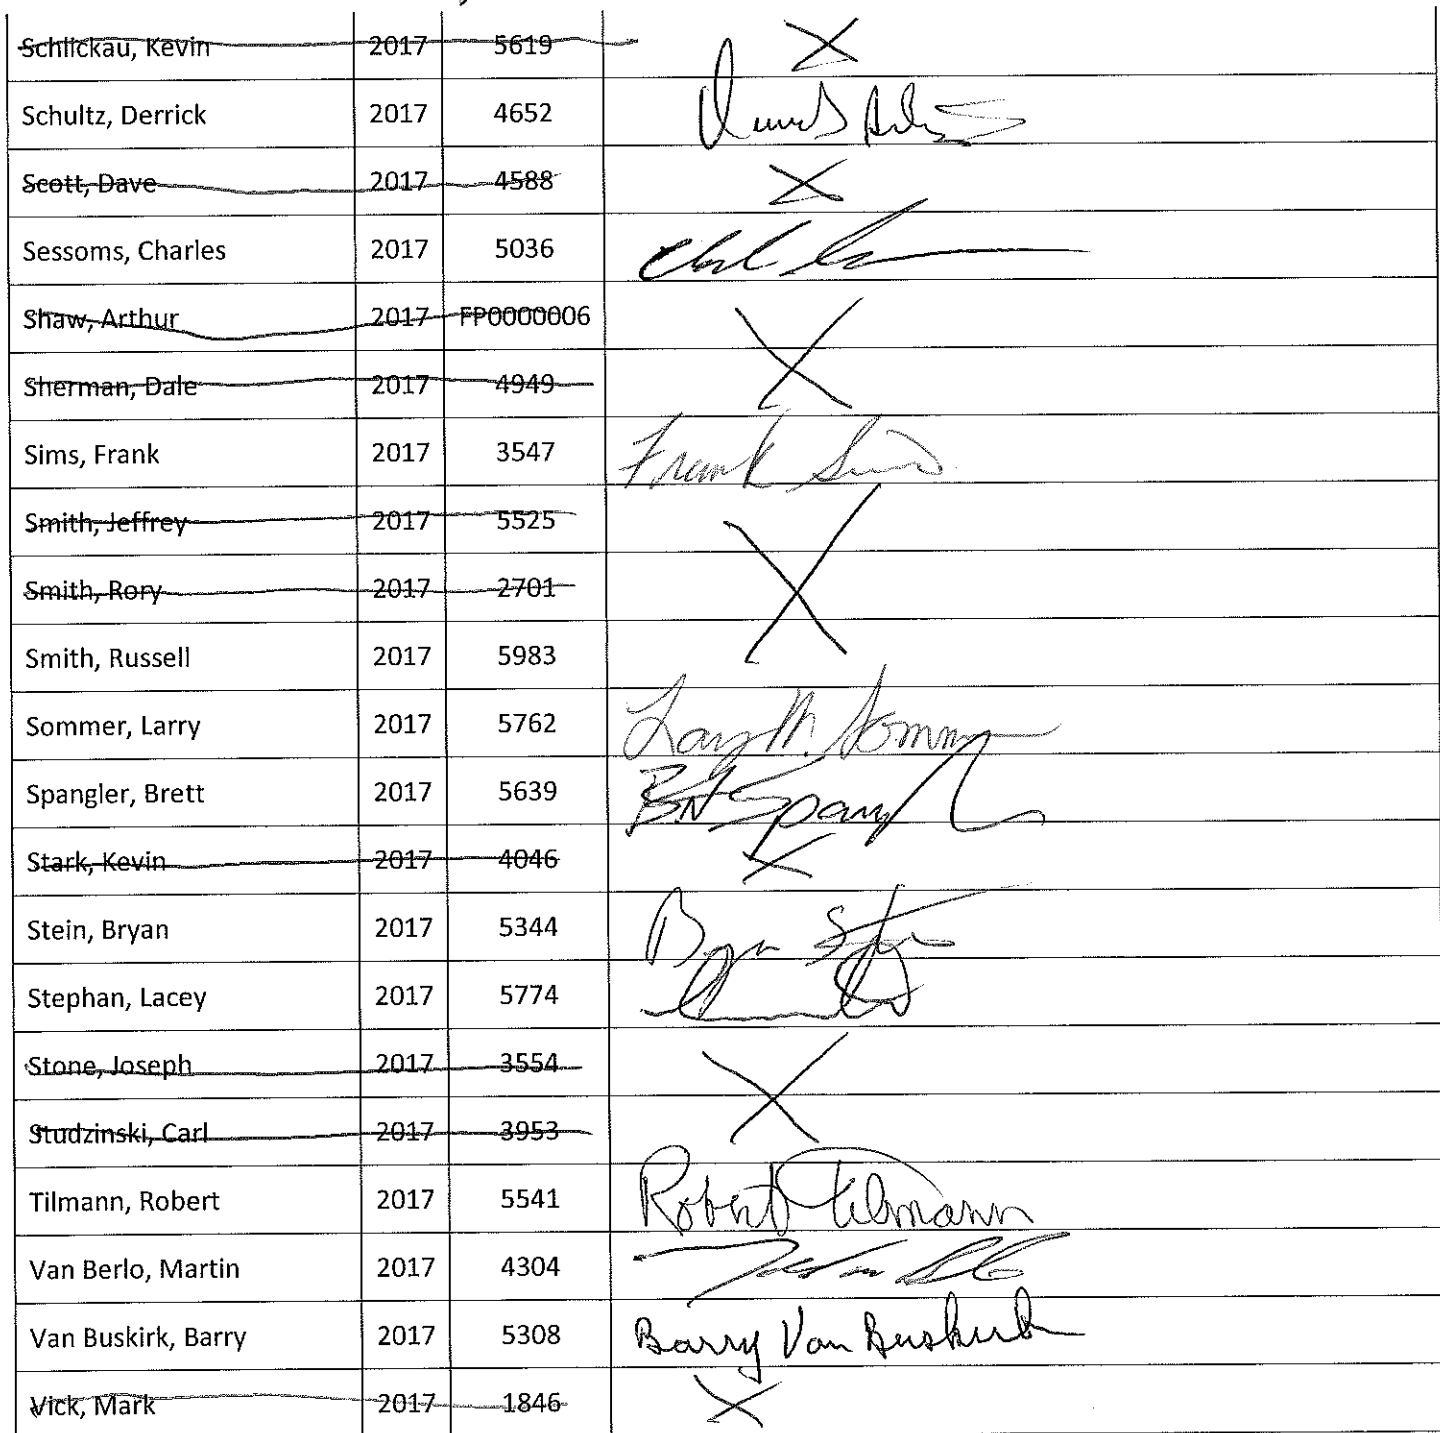 Schlickau, Kevin 2017 5619 X
Schultz, Derrick 2017 4652
Scott, Dave 2017 4588 X
Sessoms, Charles 2017 5036
Shaw, Arthur 2017 FP0000006 X
Sherman, Dale 2017 4949
Sims, Frank 2017 3547 Frank Sims
Smith, Jeffrey 2017 5525 X
Smith, Rory 2017 2701
Smith, Russell 2017 5983
Sommer, Larry 2017 5762 Larry M. Sommer
Spangler, Brett 2017 5639
Stark, Kevin 2017 4046 X
Stein, Bryan 2017 5344 Bryan Stein
Stephan, Lacey 2017 5774
Stone, Joseph 2017 3554 X
Studzinski, Carl 2017 3953
Tilmann, Robert 2017 5541 Robert Tilmann
Van Berlo, Martin 2017 4304
Van Buskirk, Barry 2017 5308 Barry Van Buskirk
Vick, Mark 2017 1846 X